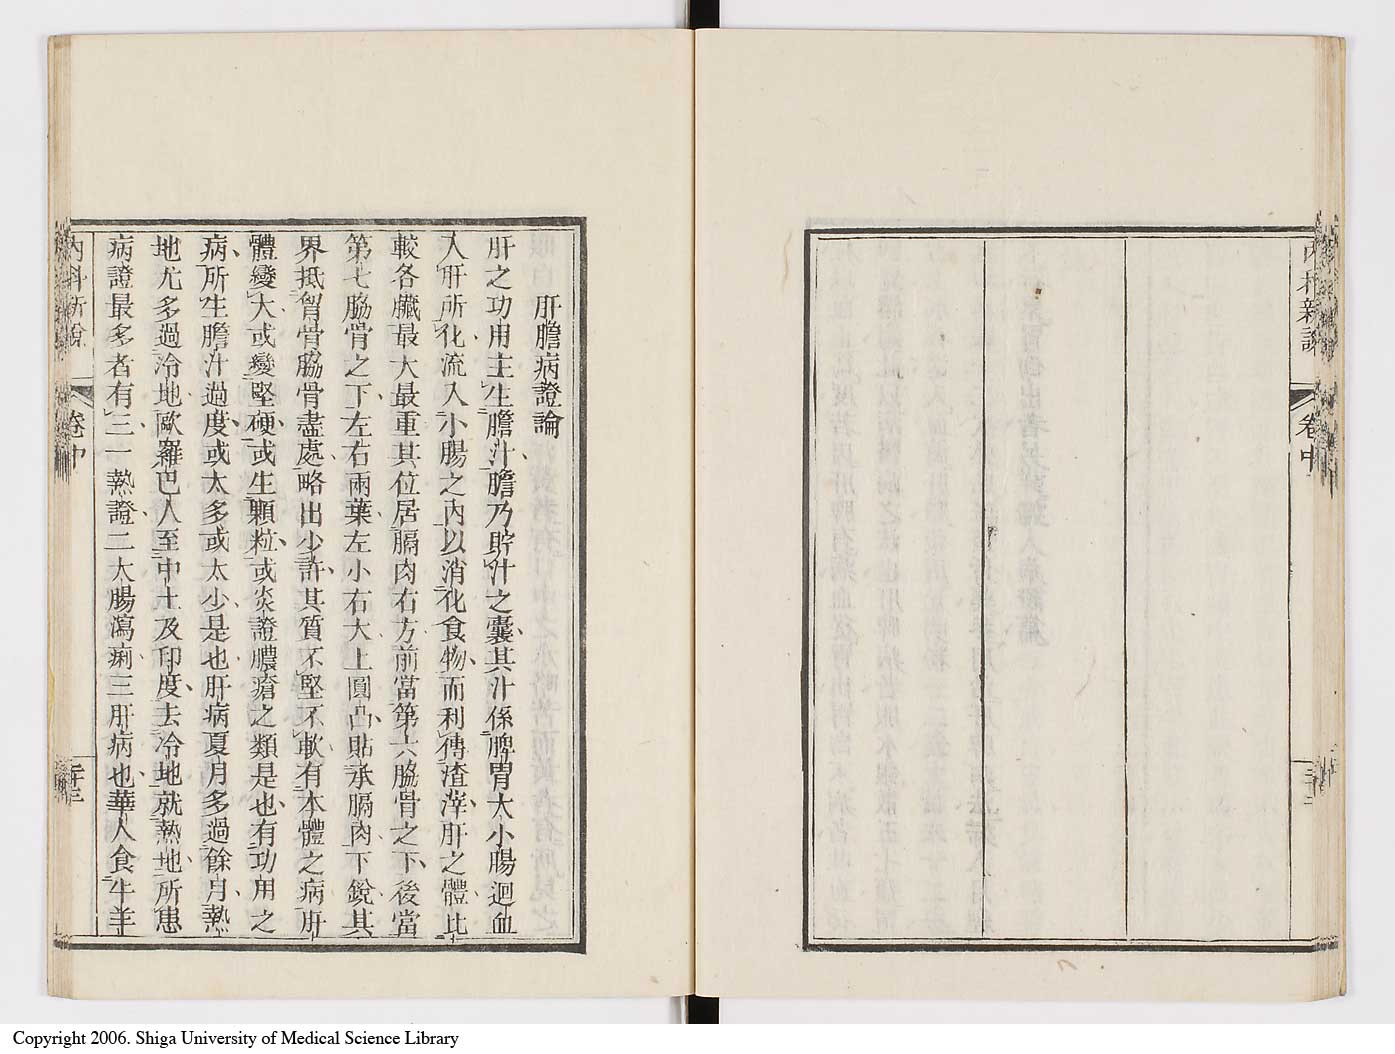 內科新說
卷中
肝膽病證論
肝之功用主生膽汁膽乃貯汁之囊其汁係脾胃大小腸迴血
入肝所化流入小腸之內以消化食物而利傳渣滓肝之體比
較各臟最大最重其位居膈肉右方前當第六脇骨之下後當
第七脇骨之下左右兩葉左小右大上圓凸貼承膈肉下銳其
界抵胷骨脇骨盡處略出少許其質不堅不軟有本體之病肝
體變大或變堅硬或生顆粒或炎證膿瘡之類是也有功用之
病所生膽汁過度或太多或太少是也肝病夏月多過餘月熱
地尤多過冷地歐羅巴人至中土及印度去冷地就熱地所患
病證最多者有三一熱證二大腸瀉痢三肝病也華人食牛羊
內科新說
卷中
二十三
Copyright 2006. Shiga University of Medical Science Library